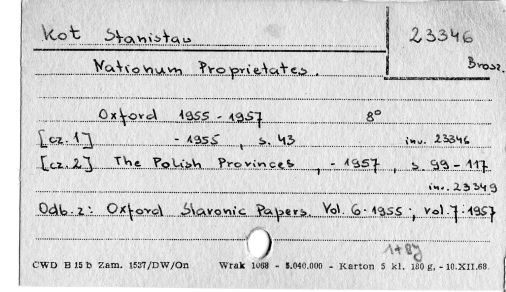 Kot Stanisław 23346
Brosz.
Nationum Proprietates.
Oxford 1955-1957 8°
[cz.1] - 1955, s. 43 inv. 23346
[cz.2] The Polish Provinces, - 1957, s. 99-117
inv. 23349
Odb. z: Oxford Slavonic Papers. Vol. 6·1955; vol. 7·1957
CWD B 15 b Zam. 1537/DW/On Wrak 1068 - 5.040.000 - Karton 5 kl. 180 g, - 10.XII.68.